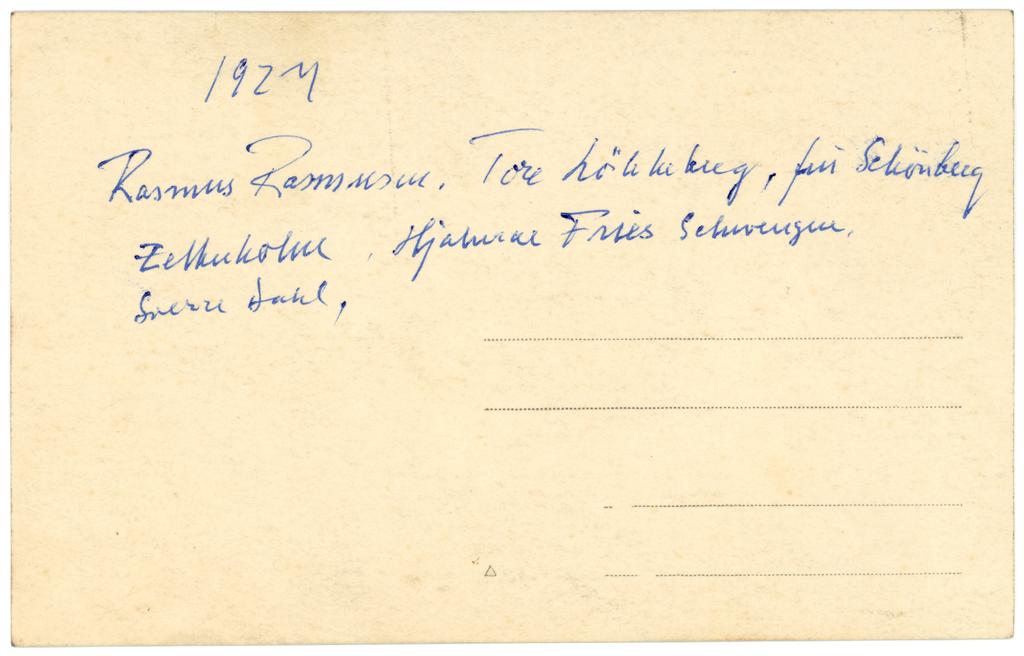 1924
Rasmus Rasmussen. Tore Løkkeberg, fru Schönberg
Hjalmar Fries Schwenzen.
Sverre Dahl,